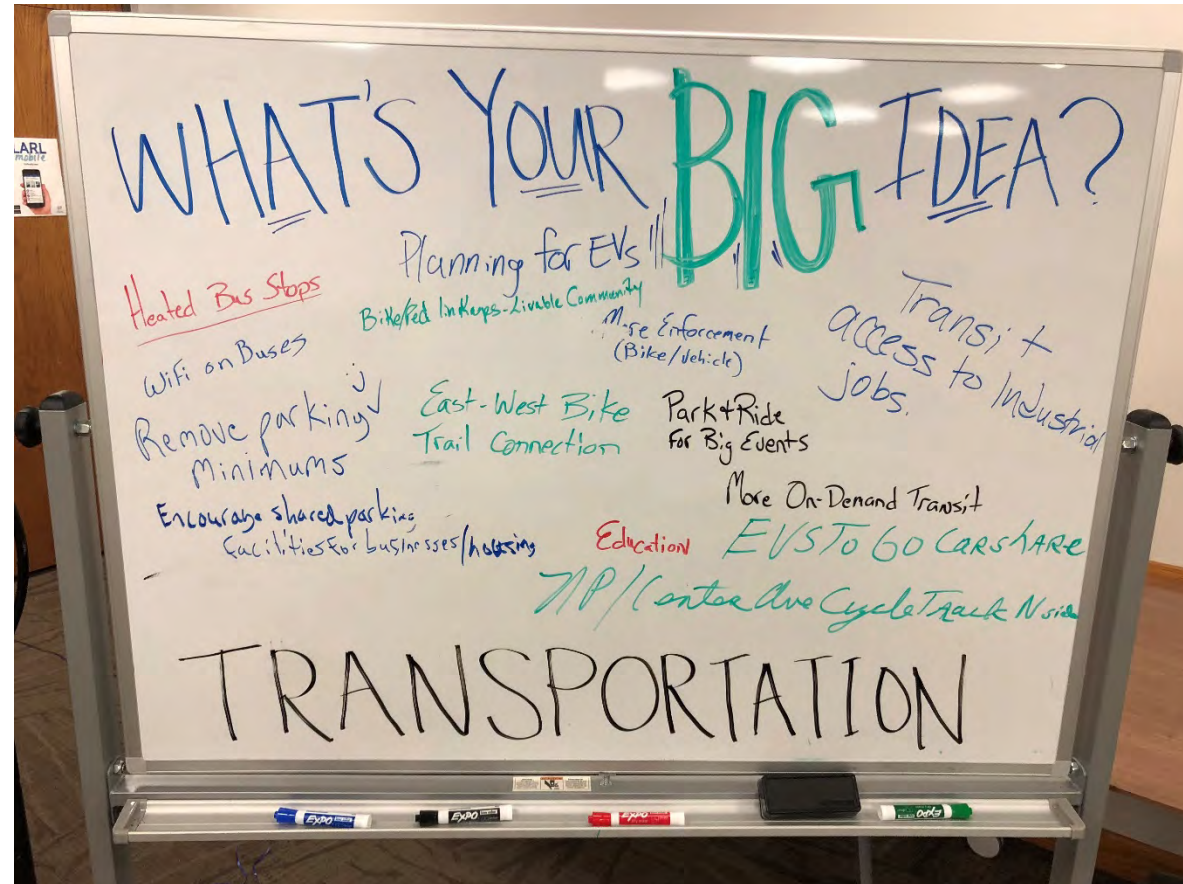 WHAT'S YOUR BIG IDEA?
LARL
mobile
Planning for EVs
Heated Bus Stops
Bike/Ped linkages-Livable Community
More Enforcement
(Bike/Vehicle)
Transit
access to Industrial
jobs.
Wifi on Buses
Remove parking
Minimums
East-West Bike
Trail Connection
Park & Ride
For Big Events
More On-Demand Transit
Encourage shared parking
facilities for businesses/housing
Education
EVS TO GO CARSHARE
NP/Center Ave Cycle Track N side
TRANSPORTATION
EXPO
EXPO
EXPO
EXPO